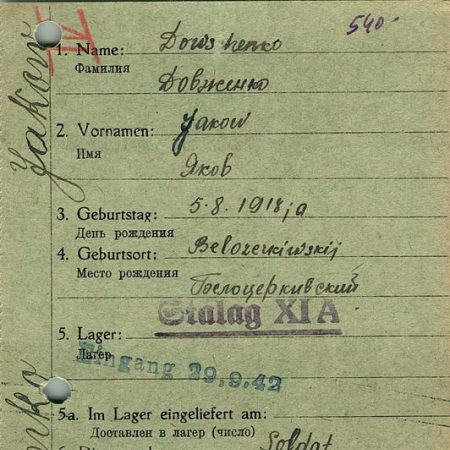 540-
IV
1. Name: Dowschenko
Фамилия
Довженко
2. Vornamen: Jakow
Имя
Яков
3. Geburtstag: 5.8.1918 ja
День рождения
4. Geburtsort: Belozerkiwskij
Место рождения
Белоцеркивский
Stalag XI A
5. Lager:
Лагер
Eingang 29.9.42
5a. Im Lager eingeliefert am:
Доставлен в лагер (число)
Soldat
Jakow
enko